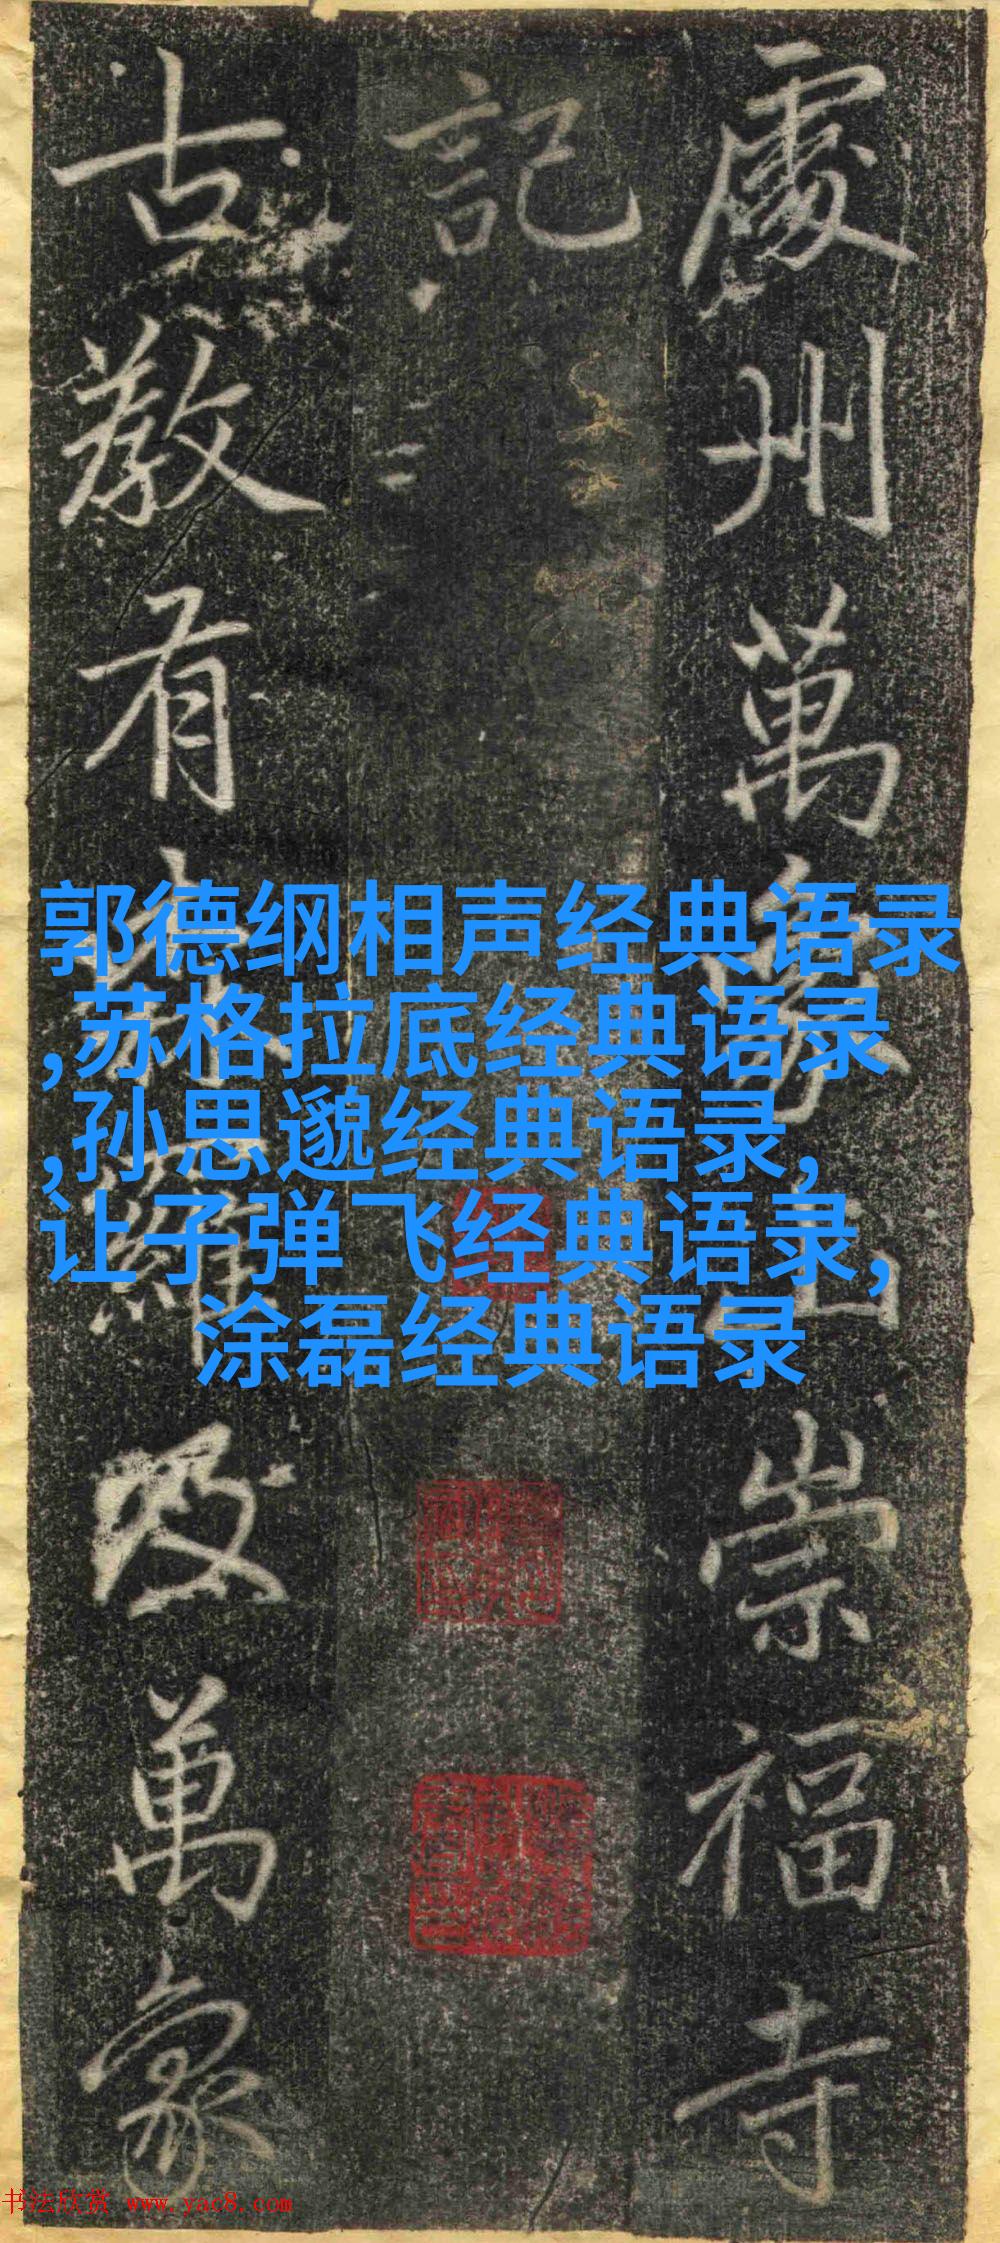 處州萬象山崇福寺
記
古教有森羅及萬象
郭德纲相声经典语录
,苏格拉底经典语录
,孙思邈经典语录,
让子弹飞经典语录,
涂磊经典语录
书法欣赏 www.yac8.com